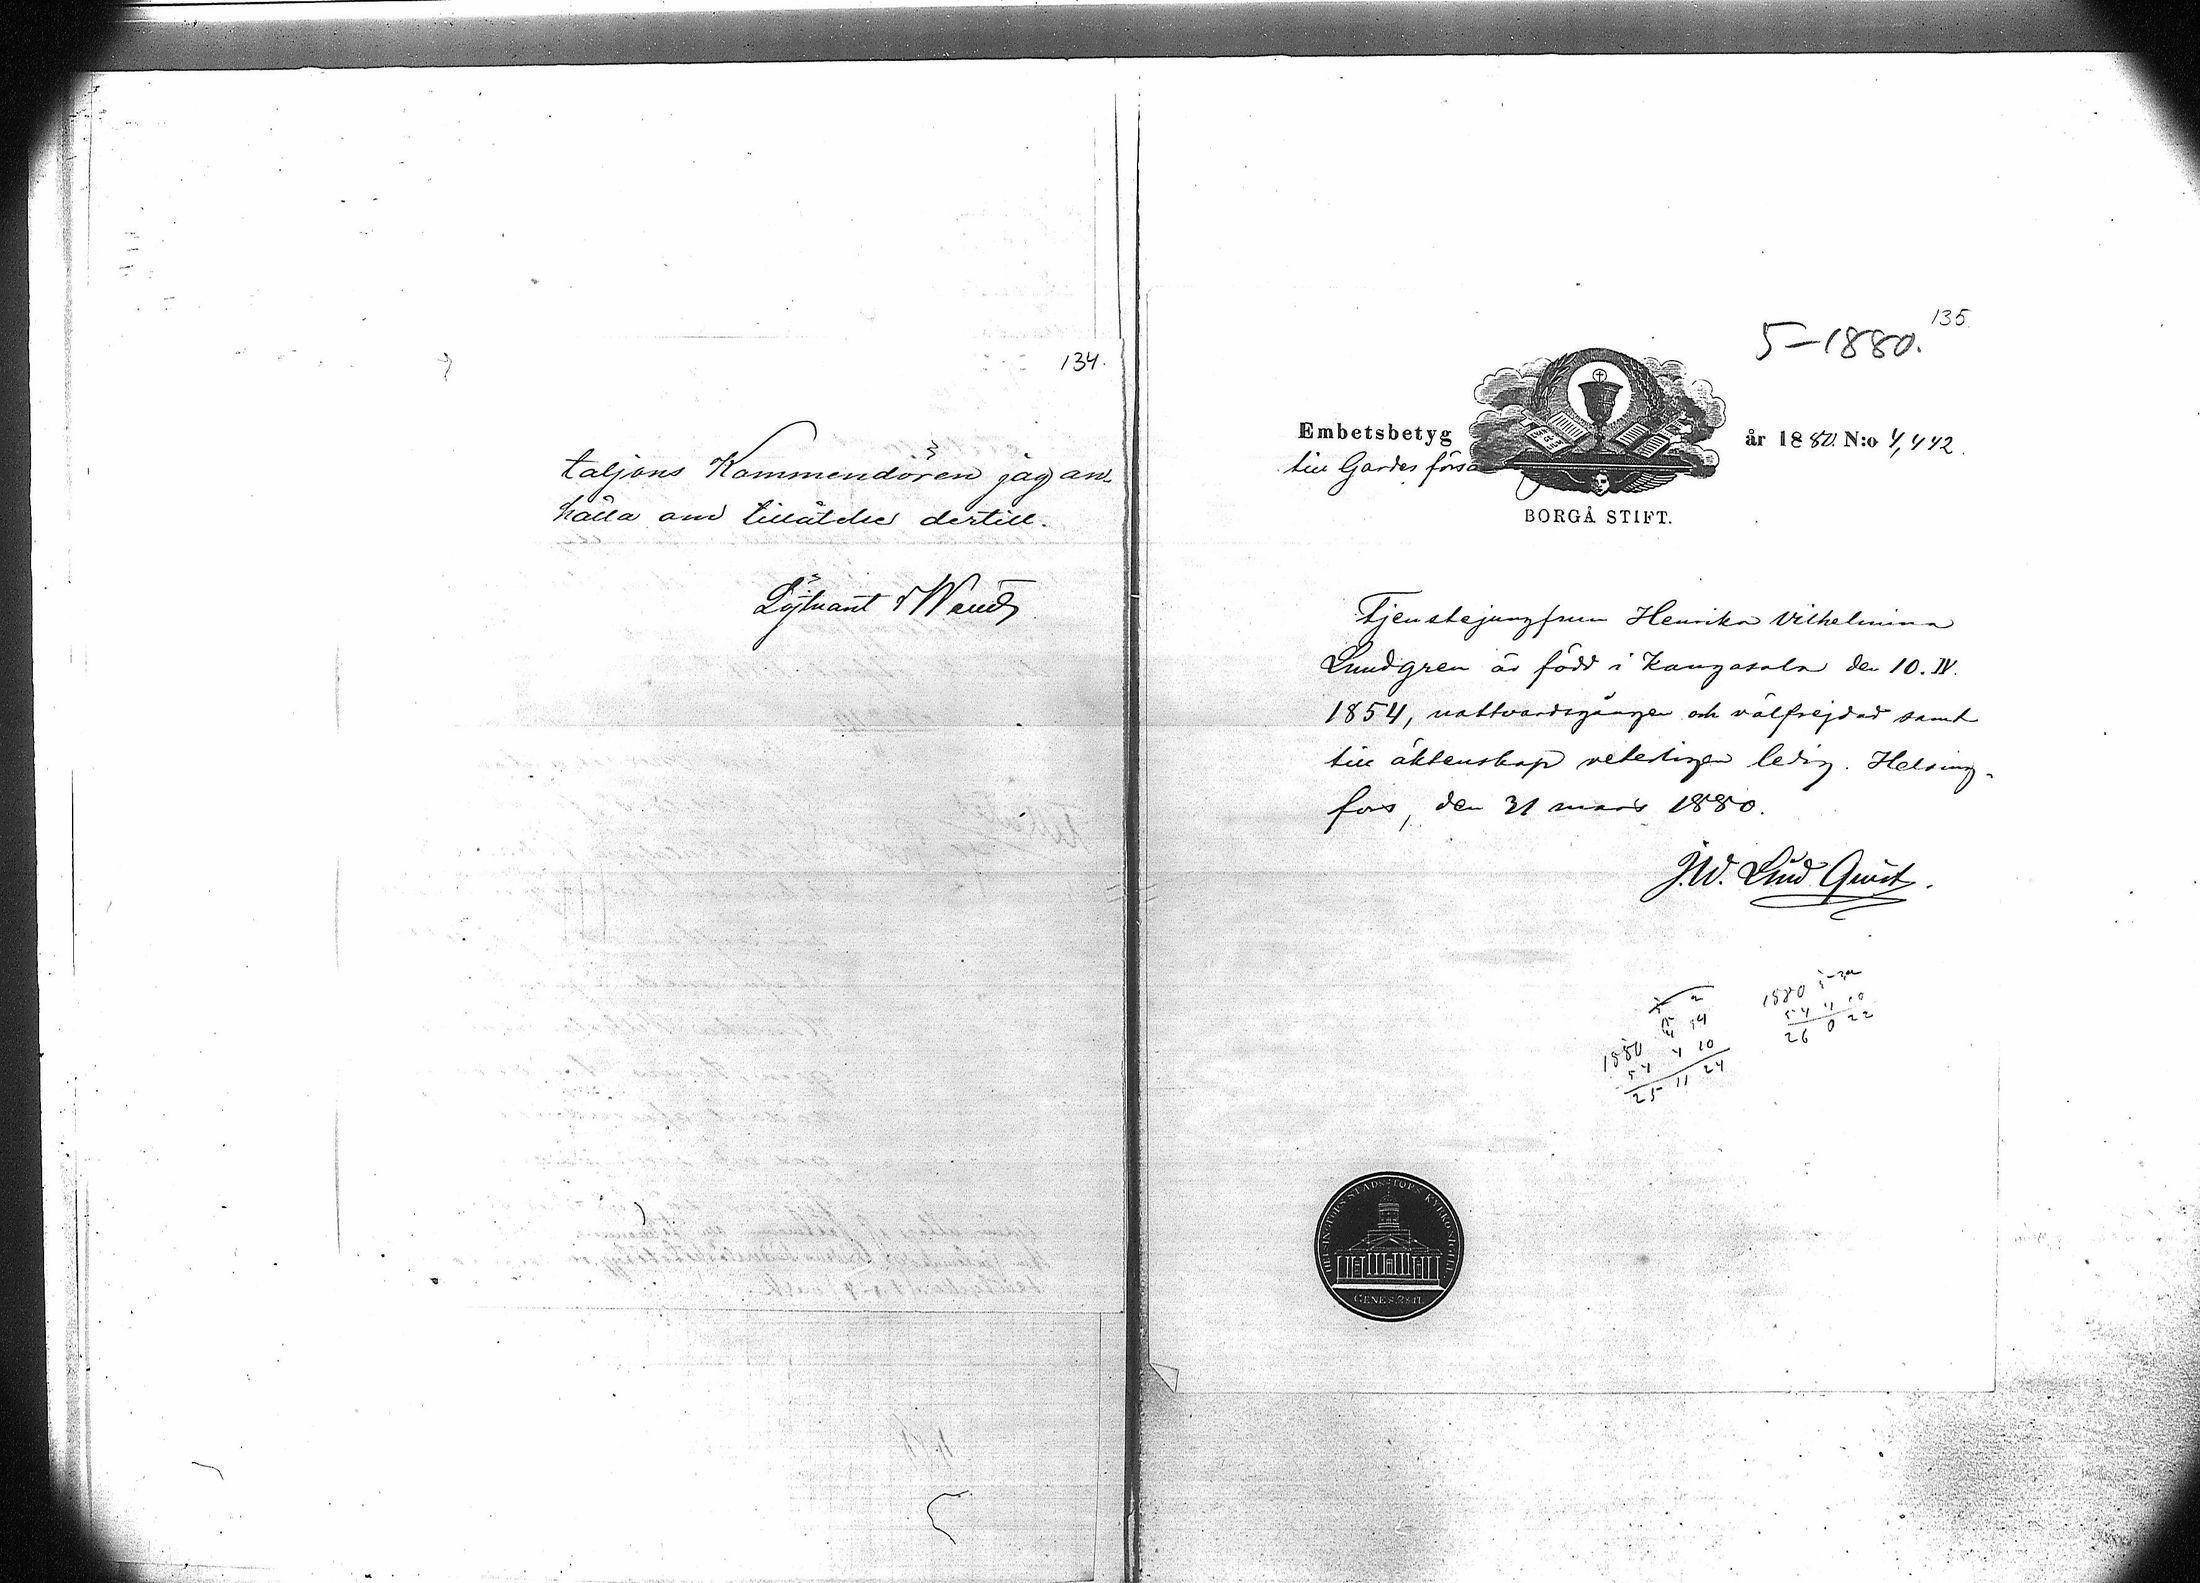 134.
taljons Kommendören jag an-
hålla om tillåtelse dertill.
Löjtnant
135
5-1880.
Embetsbetyg år 1880 N:o 4,442.
till Gardes förs
BORGÅ STIFT.
Tjenstejungfrun Henrika Vilhelmina
Lundgren är född i Kangasala den 10. IV.
1854, nattvardsgången och välfrejdad samt
till äktenskap veterligen ledig. Helsing-
fors, den 31 mars 1880.
J.W. Lind Qvist.
1880
54 4 10
26 0 22
4 14
1880 4 10
54
25 11 24
HELSINGFORS STADS TOPS KYRKOSIGILL
GENES. 28:17.